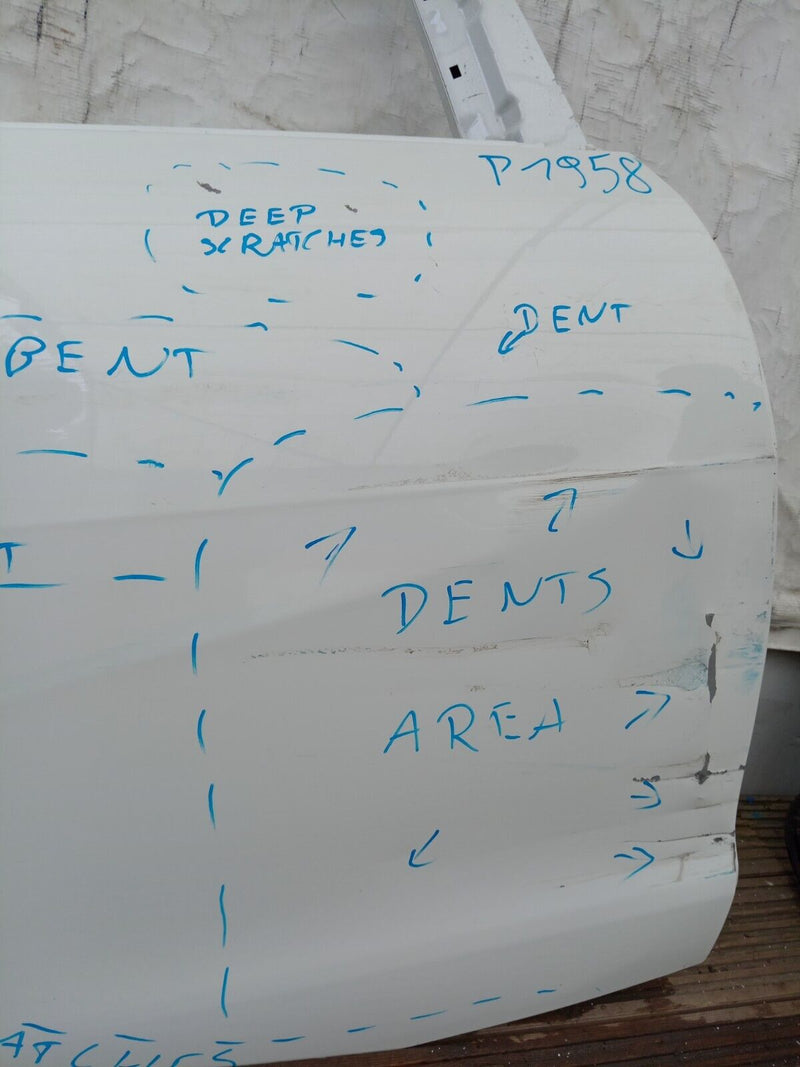 P1958
DEEP
SCRATCHES
DENT
BENT
T
DENTS
AREA
ATCHES